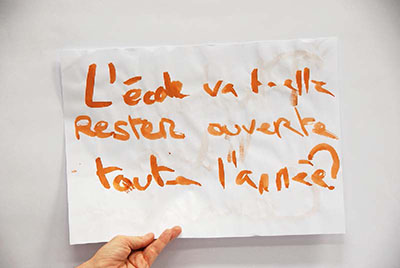 L'école va t-elle
Rester ouverte
toute l'année?